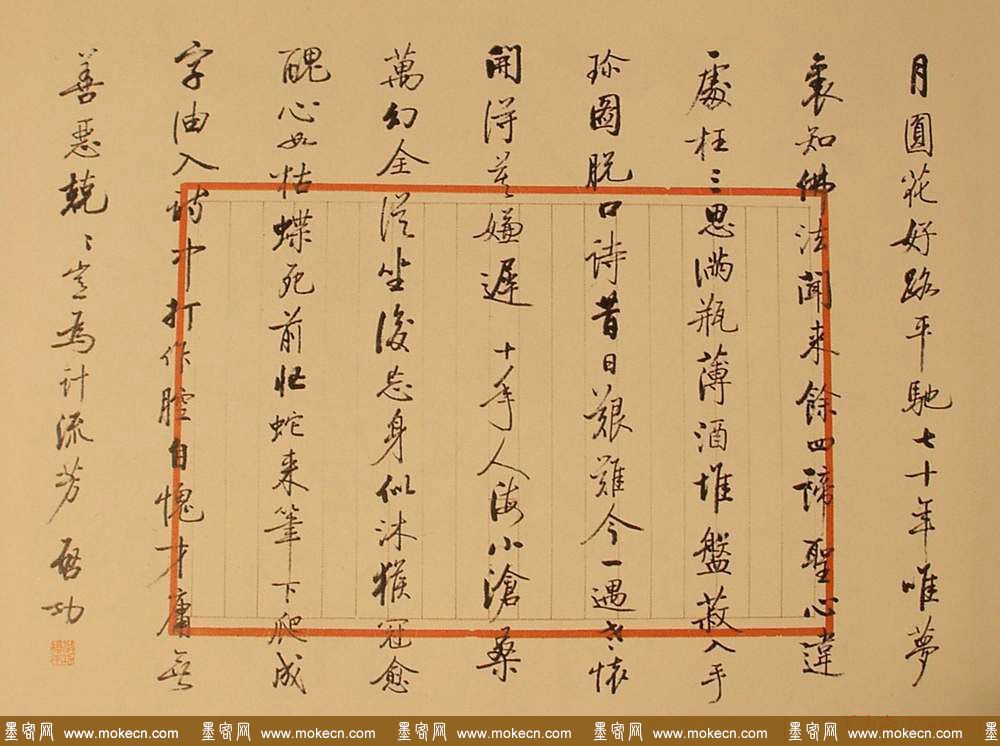 月圓花好路平馳七十年唯夢
裏知佛法聞来餘四諦聖心違
處枉三思滿瓶薄酒堆盤菽入手
珍圖脱口詩昔日艱難今一遇老懷
開得莫嫌遲 十年人海小滄桑
萬幻全從坐後忘身似沐猴冠愈
醜心如枯蝶死前忙蛇来筆下爬成
字油入詩中打作腔自愧才庸無
善惡兢〻豈為計流芳 啓功
墨客网 www.mokecn.com 墨客网 www.mokecn.com 墨客网 www.mokecn.com 墨客网 www.mokecn.com 墨